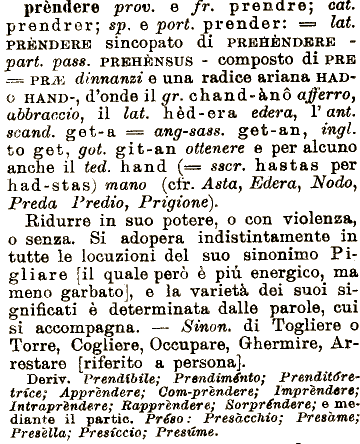 prèndere prov. e fr. prendre; cat.
prendrer; sp. e port. prender: = lat.
PRÈNDERE sincopato di PREHÈNDERE -
part. pass. PREHÈNSUS - composto di PRE
= PRÆ dinnanzi e una radice ariana HAD-
o HAND-, d'onde il gr. chand-ànô afferro,
abbraccio, il lat. hèd-era edera, l'ant.
scand. get-a = ang-sass. get-an, ingl.
to get, got. git-an ottenere e per alcuno
anche il ted. hand (= sscr. hastas per
had-stas) mano (cfr. Asta, Edera, Nodo,
Preda Predio, Prigione).
Ridurre in suo potere, o con violenza,
o senza. Si adopera indistintamente in
tutte le locuzioni del suo sinonimo Pi-
gliare [il quale però è piú energico, ma
meno garbato], e la varietà dei suoi si-
gnificati è determinata dalle parole, cui
si accompagna. — Sinon. di Togliere o
Torre, Cogliere, Occupare, Ghermire, Ar-
restare [riferito a persona].
Deriv. Prendíbile; Prendiménto; Prenditóre-
tríce; Apprèndere; Com-prèndere; Imprèndere;
Intraprèndere; Rapprèndere; Sorprèndere; e me-
diante il partic. Préso: Presàcchio; Presàme;
Presèlla; Presíccio; Presúme.